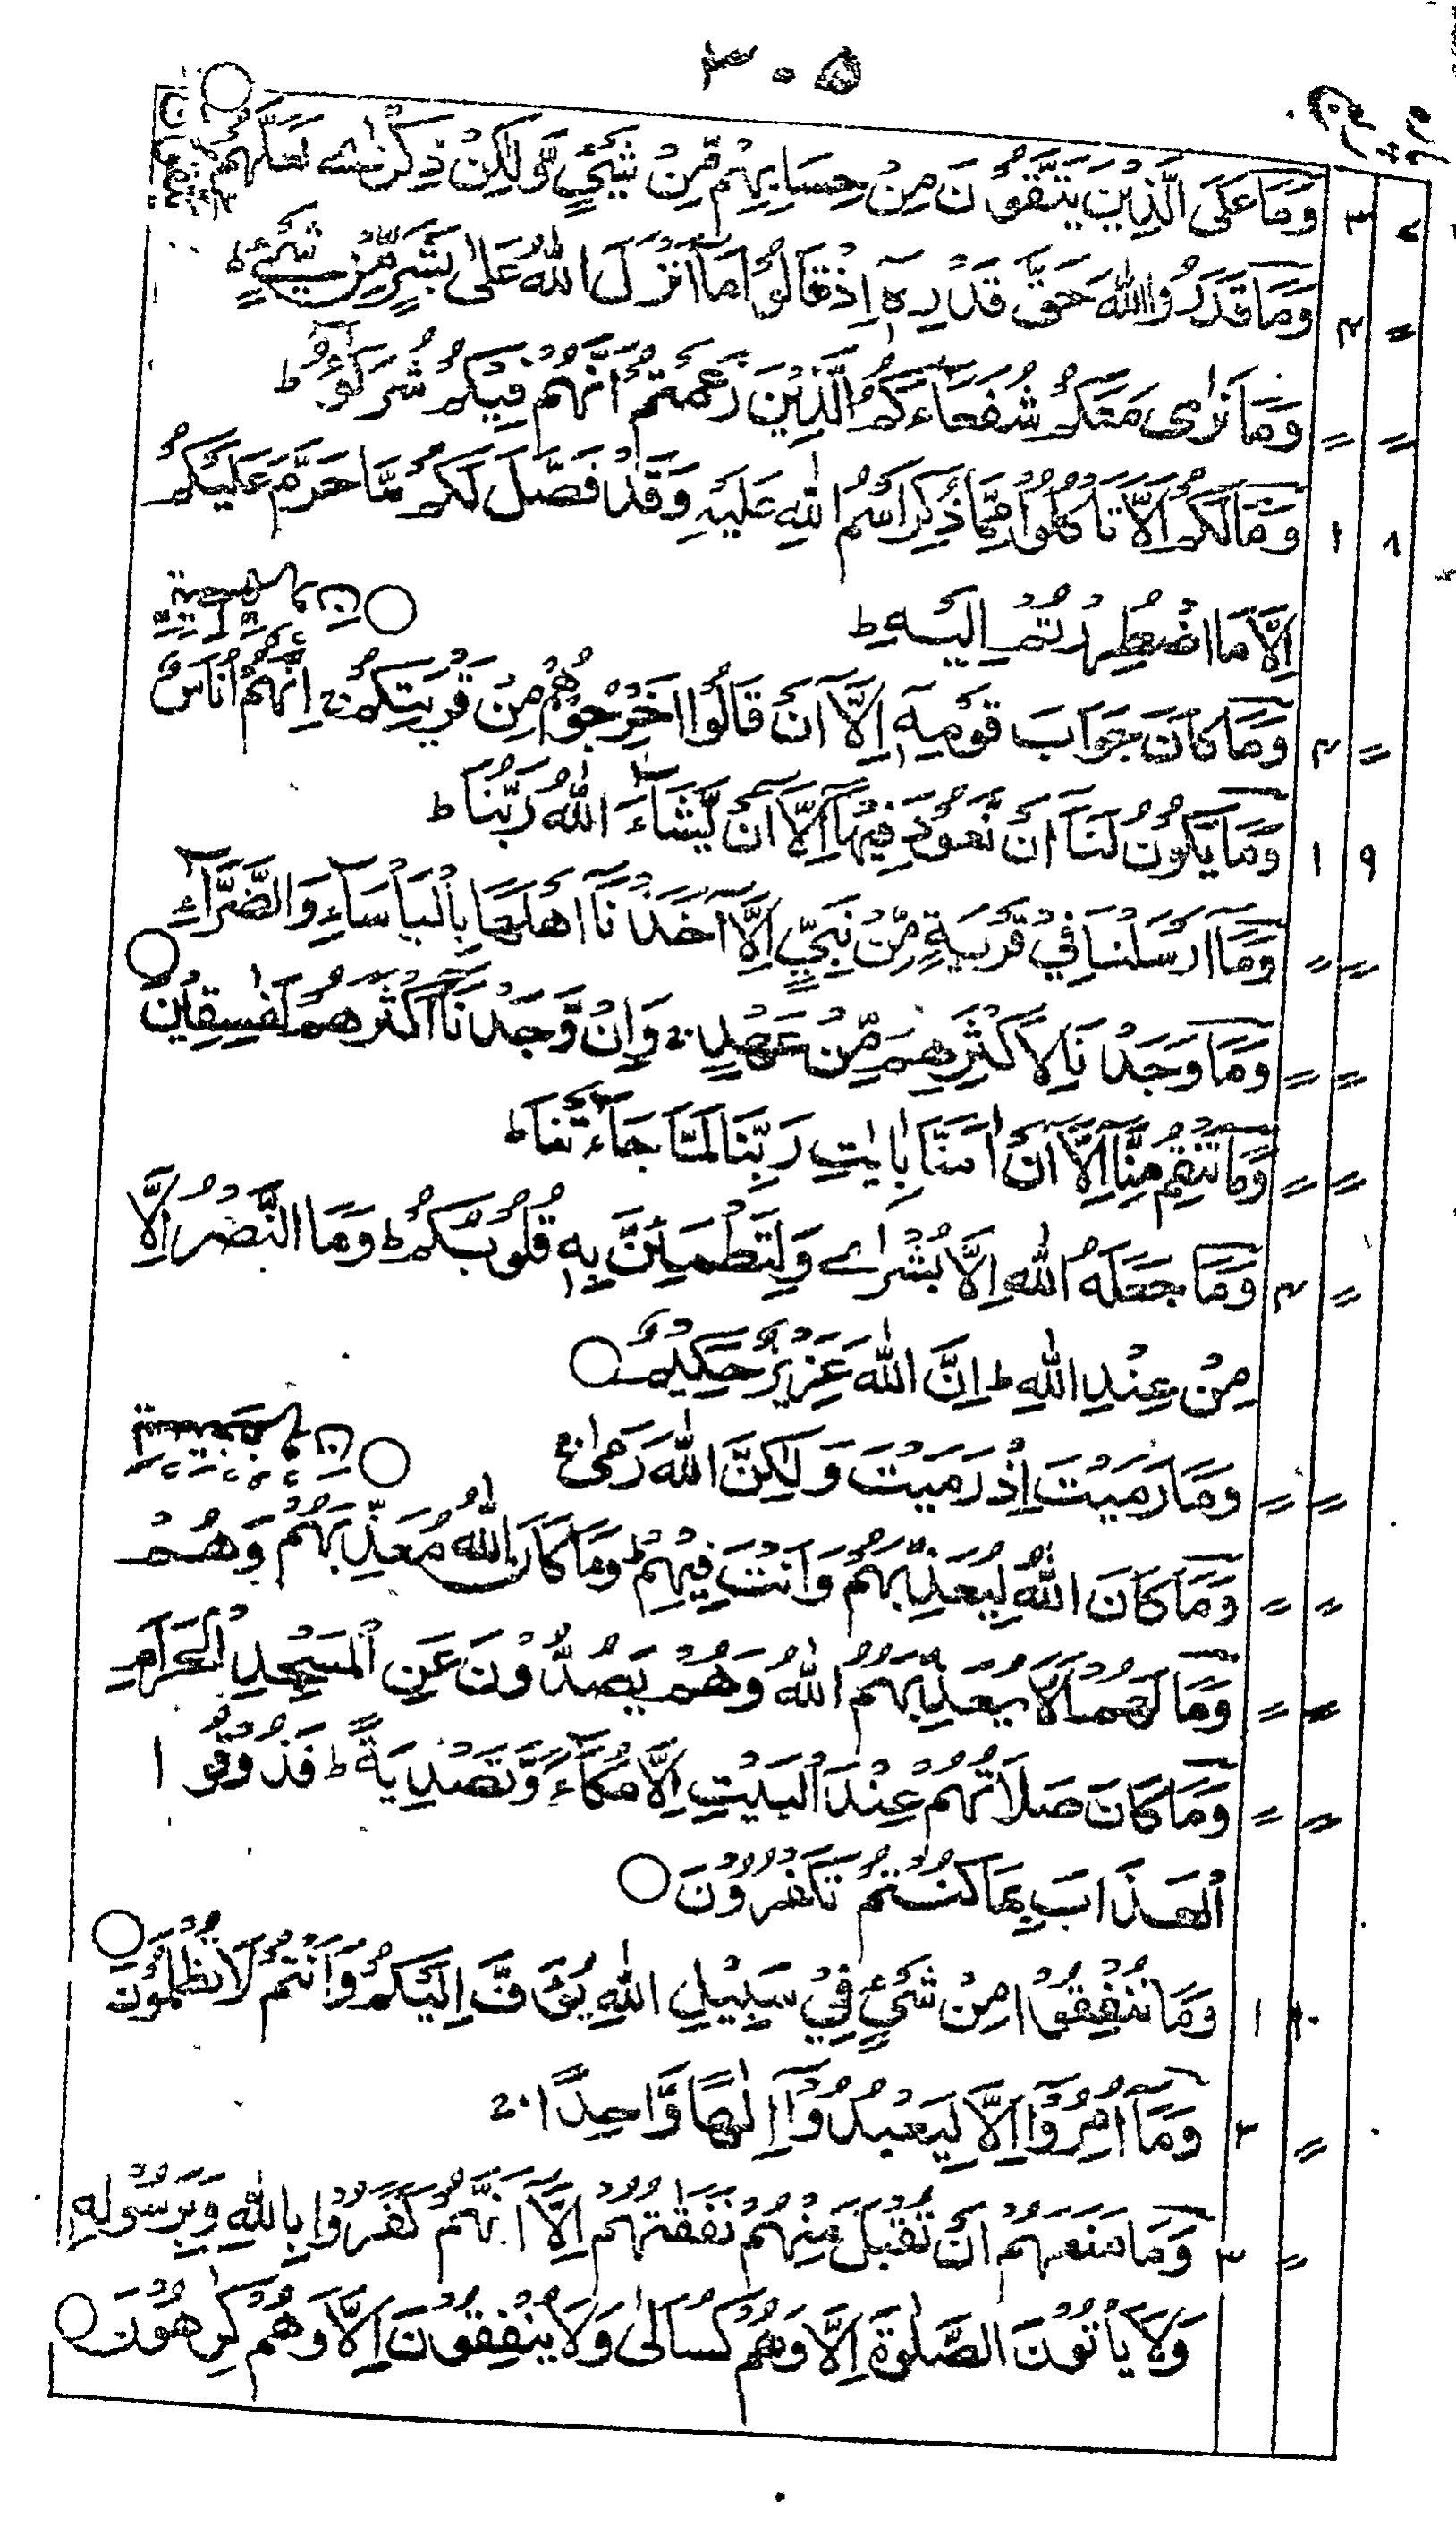 ٣٠٥
٧ ٣ وَمَا عَلَى الَّذِيْنَ يَتَّقُوْنَ مِنْ حِسَابِهِمْ مِّنْ شَيْءٍ وَّلٰكِنْ ذِكْرٰى لَعَلَّهُمْ
〃 ٢ وَمَا قَدَرُوا اللّٰهَ حَقَّ قَدْرِهٖٓ اِذْ قَالُوْا مَآ اَنْزَلَ اللّٰهُ عَلٰى بَشَرٍ مِّنْ شَيْءٍ ط
〃 〃 وَمَا نَرٰى مَعَكُمْ شُفَعَآءَكُمُ الَّذِيْنَ زَعَمْتُمْ اَنَّهُمْ فِيْكُمْ شُرَكٰٓؤُا ط
٨ ١ وَمَا لَكُمْ اَلَّا تَاْكُلُوْا مِمَّا ذُكِرَ اسْمُ اللّٰهِ عَلَيْهِ وَقَدْ فَصَّلَ لَكُمْ مَّا حَرَّمَ عَلَيْكُمْ
اِلَّا مَا اضْطُرِرْتُمْ اِلَيْهِ ط
〃 ٢ وَمَا كَانَ جَوَابَ قَوْمِهٖٓ اِلَّآ اَنْ قَالُوْا اَخْرِجُوْهُمْ مِنْ قَرْيَتِكُمْ ج اِنَّهُمْ اُنَاسٌ
يَتَطَهَّرُوْنَ ○
٩ ١ وَمَا يَكُوْنُ لَنَآ اَنْ نَّعُوْدَ فِيْهَآ اِلَّآ اَنْ يَّشَآءَ اللّٰهُ رَبُّنَا ط
〃 〃 وَمَآ اَرْسَلْنَا فِيْ قَرْيَةٍ مِّنْ نَّبِيٍّ اِلَّآ اَخَذْنَآ اَهْلَهَا بِالْبَاْسَآءِ وَالضَّرَّآءِ
〃 〃 وَمَا وَجَدْنَا لِاَكْثَرِهِمْ مِّنْ عَهْدٍ ج وَاِنْ وَّجَدْنَآ اَكْثَرَهُمْ لَفٰسِقِيْنَ ○
〃 〃 وَمَا تَنْقِمُ مِنَّآ اِلَّآ اَنْ اٰمَنَّا بِاٰيٰتِ رَبِّنَا لَمَّا جَآءَتْنَا ط
〃 ٢ وَمَا جَعَلَهُ اللّٰهُ اِلَّا بُشْرٰى وَلِتَطْمَئِنَّ بِهٖ قُلُوْبُكُمْ ط وَمَا النَّصْرُ اِلَّا
مِنْ عِنْدِ اللّٰهِ ط اِنَّ اللّٰهَ عَزِيْزٌ حَكِيْمٌ ○
〃 〃 وَمَا رَمَيْتَ اِذْ رَمَيْتَ وَلٰكِنَّ اللّٰهَ رَمٰى ج
〃 〃 وَمَا كَانَ اللّٰهُ لِيُعَذِّبَهُمْ وَاَنْتَ فِيْهِمْ ط وَمَا كَانَ اللّٰهُ مُعَذِّبَهُمْ وَهُمْ
يَسْتَغْفِرُوْنَ ○
〃 〃 وَمَا لَهُمْ اَلَّا يُعَذِّبَهُمُ اللّٰهُ وَهُمْ يَصُدُّوْنَ عَنِ الْمَسْجِدِ الْحَرَامِ
〃 〃 وَمَا كَانَ صَلَاتُهُمْ عِنْدَ الْبَيْتِ اِلَّا مُكَآءً وَّتَصْدِيَةً ط فَذُوْقُوا
الْعَذَابَ بِمَا كُنْتُمْ تَكْفُرُوْنَ ○
١٠ ١ وَمَا تُنْفِقُوْا مِنْ شَيْءٍ فِيْ سَبِيْلِ اللّٰهِ يُوَفَّ اِلَيْكُمْ وَاَنْتُمْ لَا تُظْلَمُوْنَ ○
〃 ٢ وَمَآ اُمِرُوْٓا اِلَّا لِيَعْبُدُوْٓا اِلٰهًا وَّاحِدًا ج
〃 ٣ وَمَا مَنَعَهُمْ اَنْ تُقْبَلَ مِنْهُمْ نَفَقٰتُهُمْ اِلَّآ اَنَّهُمْ كَفَرُوْا بِاللّٰهِ وَبِرَسُوْلِهٖ
وَلَا يَاْتُوْنَ الصَّلٰوةَ اِلَّا وَهُمْ كُسَالٰى وَلَا يُنْفِقُوْنَ اِلَّا وَهُمْ كٰرِهُوْنَ ○